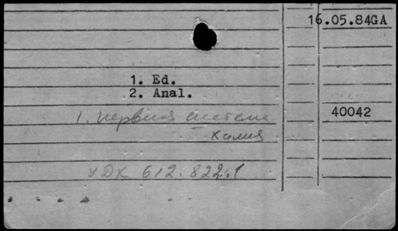 16.05.84GA
1. Ed.
2. Anal.
1. нервная система
40042
химия
УДК 612.822.1